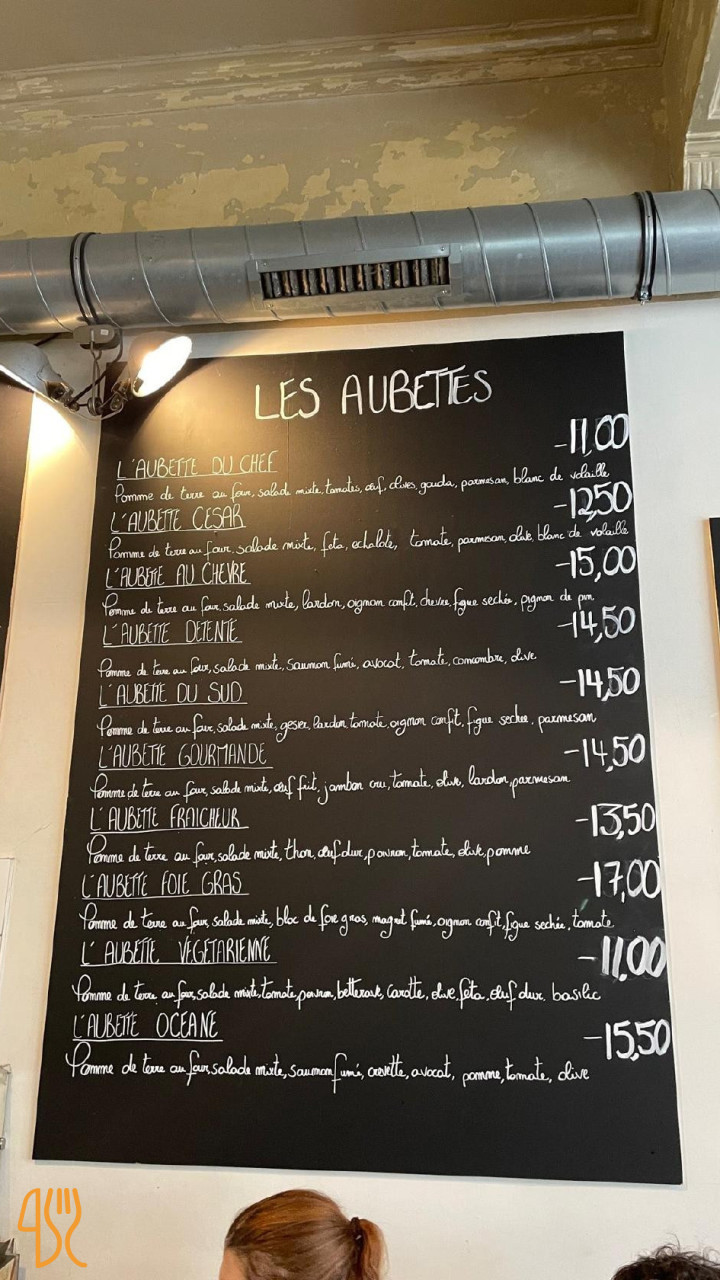 LES AUBETTES
L'AUBETTE DU CHEF -11,00
Pomme de terre au four, salade mixte, tomates, œuf, olives, gouda, parmesan, blanc de volaille
L'AUBETTE CESAR -12,50
Pomme de terre au four, salade mixte, feta, echalote, tomate, parmesan, olive, blanc de volaille
L'AUBETTE AU CHEVRE -15,00
Pomme de terre au four, salade mixte, lardon, oignon confit, chevre, figue sechée, pignon de pin
L'AUBETTE DETENTE -14,50
Pomme de terre au four, salade mixte, saumon fumé, avocat, tomate, concombre, olive
L'AUBETTE DU SUD -14,50
Pomme de terre au four, salade mixte, gesier, lardon, tomate, oignon confit, figue sechee, parmesan
L'AUBETTE GOURMANDE -14,50
Pomme de terre au four, salade mixte, œuf frit, jambon cru, tomate, olive, lardon, parmesan
L'AUBETTE FRAICHEUR -13,50
Pomme de terre au four, salade mixte, thon, œuf dur, poivron, tomate, olive, pomme
L'AUBETTE FOIE GRAS -17,00
Pomme de terre au four, salade mixte, bloc de foie gras, magret fumé, oignon confit, figue sechée, tomate
L'AUBETTE VEGETARIENNE -11,00
Pomme de terre au four, salade mixte, tomate, poivron, betterave, carotte, olive, feta, œuf dur, basilic
L'AUBETTE OCEANE -15,50
Pomme de terre au four, salade mixte, saumon fumé, crevette, avocat, pomme, tomate, olive